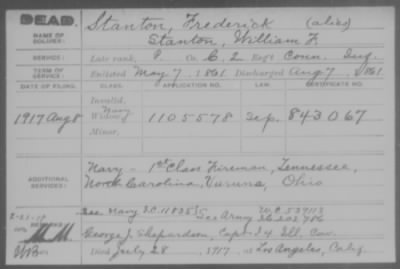 DEAD.
NAME OF SOLDIER:
Stanton, Frederick (alias)
Stanton, William F.
SERVICE:
Late rank, P. Co. C. 2 Reg't Conn. Inf.
TERM OF SERVICE:
Enlisted May 7, 1861 Discharged Aug 7, 1861
DATE OF FILING. CLASS. APPLICATION NO. LAW. CERTIFICATE NO.
Invalid,
Navy
1917 Aug 8 Widow, 1105578 843067
Minor,
ADDITIONAL SERVICES:
Navy - 1st Class Fireman, Tennessee,
North Carolina, Ohio
REMARKS:
See Navy
See Army
George J. Shepardson, Ill. Cav.
Died July 28, 1917, at Los Angeles, Calif.